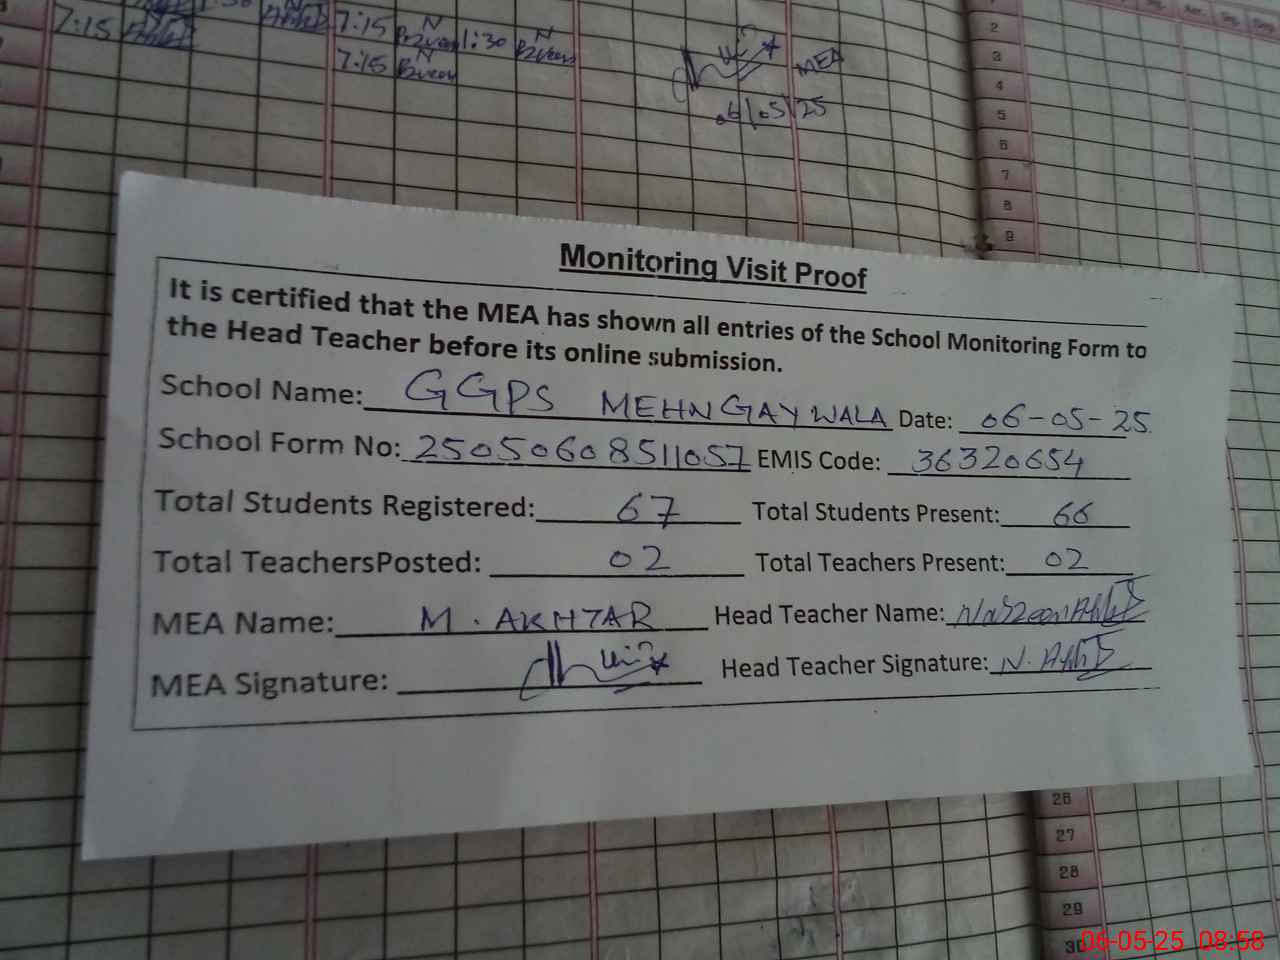 7:15 7:15 N 1:30 N
7:15 N
MEA
06/05/25
2
3
4
5
6
7
8
9
Monitoring Visit Proof
It is certified that the MEA has shown all entries of the School Monitoring Form to
the Head Teacher before its online submission.
School Name: GGPS MEHNGAYWALA Date: 06-05-25
School Form No: 25050608511057 EMIS Code: 36320654
Total Students Registered: 67 Total Students Present: 66
Total TeachersPosted: 02 Total Teachers Present: 02
MEA Name: M. AKHTAR Head Teacher Name:
MEA Signature: Head Teacher Signature: N.
26
27
28
29
30
06-05-25 08:58